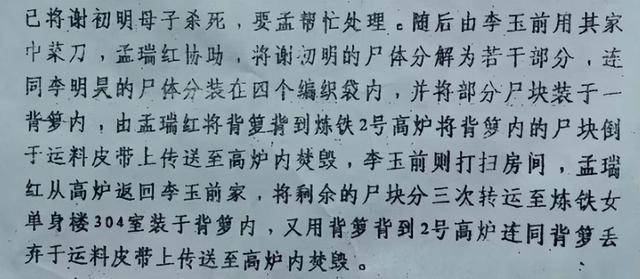 已将谢初明母子杀死，要孟帮忙处理。随后由李玉前用其家
中菜刀，孟瑞红协助，将谢初明的尸体分解为若干部分，连
同李明昊的尸体分装在四个编织袋内，并将部分尸块装于一
背箩内，由孟瑞红将背箩背到炼铁2号高炉将背箩内的尸块倒
于运料皮带上传送至高炉内焚毁，李玉前则打扫房间，孟瑞
红从高炉返回李玉前家，将剩余的尸块分三次转运至炼铁女
单身楼304室装于背箩内，又用背箩背到2号高炉连同背箩丢
弃于运料皮带上传送至高炉内焚毁。